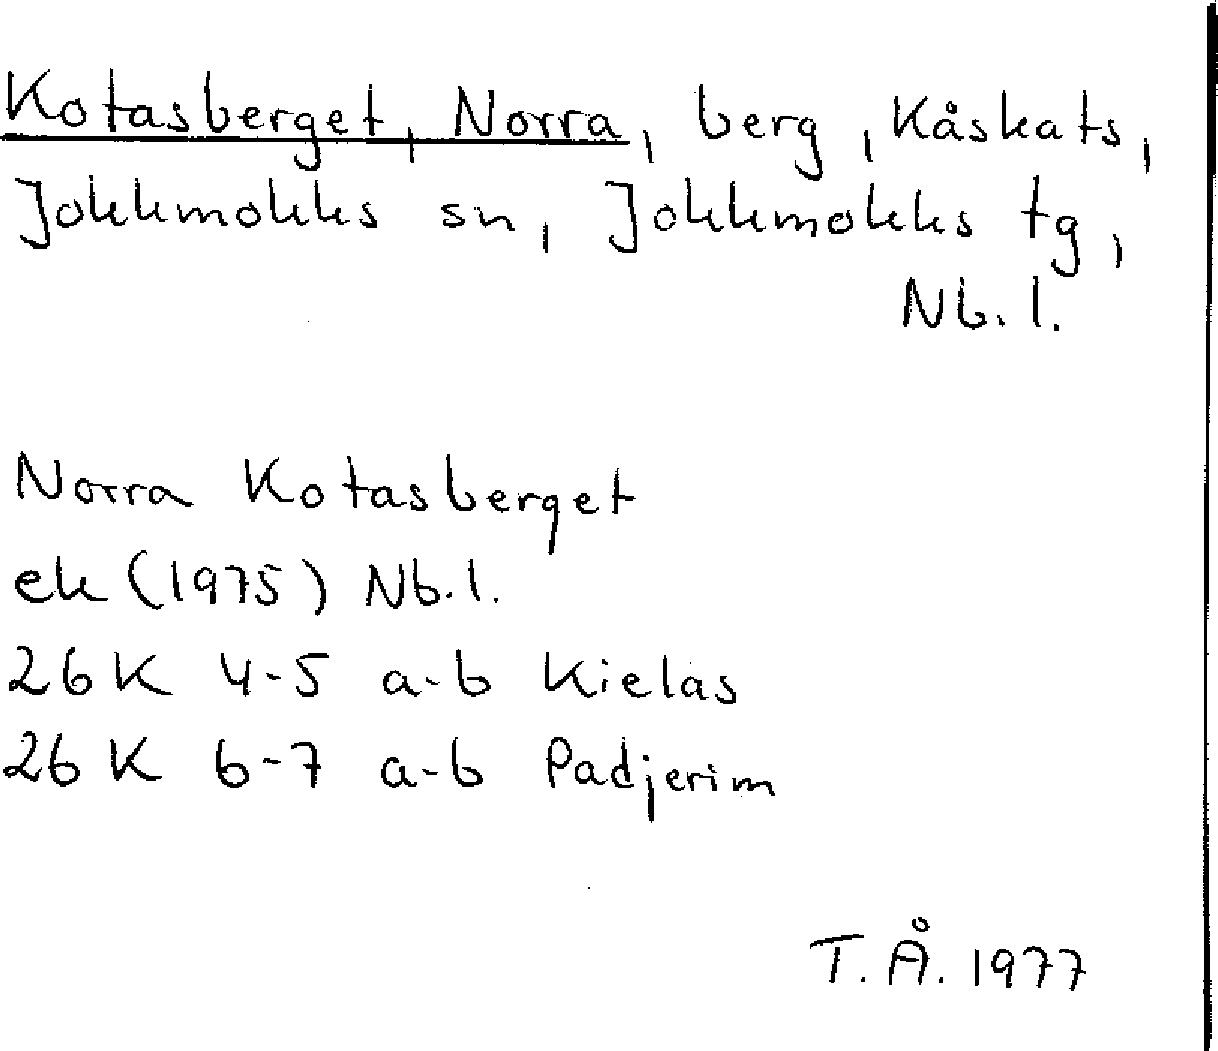 Kotasberget, Norra, berg, Kåskats,
Jokkmokks sn, Jokkmokks tg,
Nb. l.
Norra Kotasberget
ek (1975) Nb. l.
26 K 4-5 a-b Kielas
26 K 6-7 a-b Padjerim
T. Å. 1977